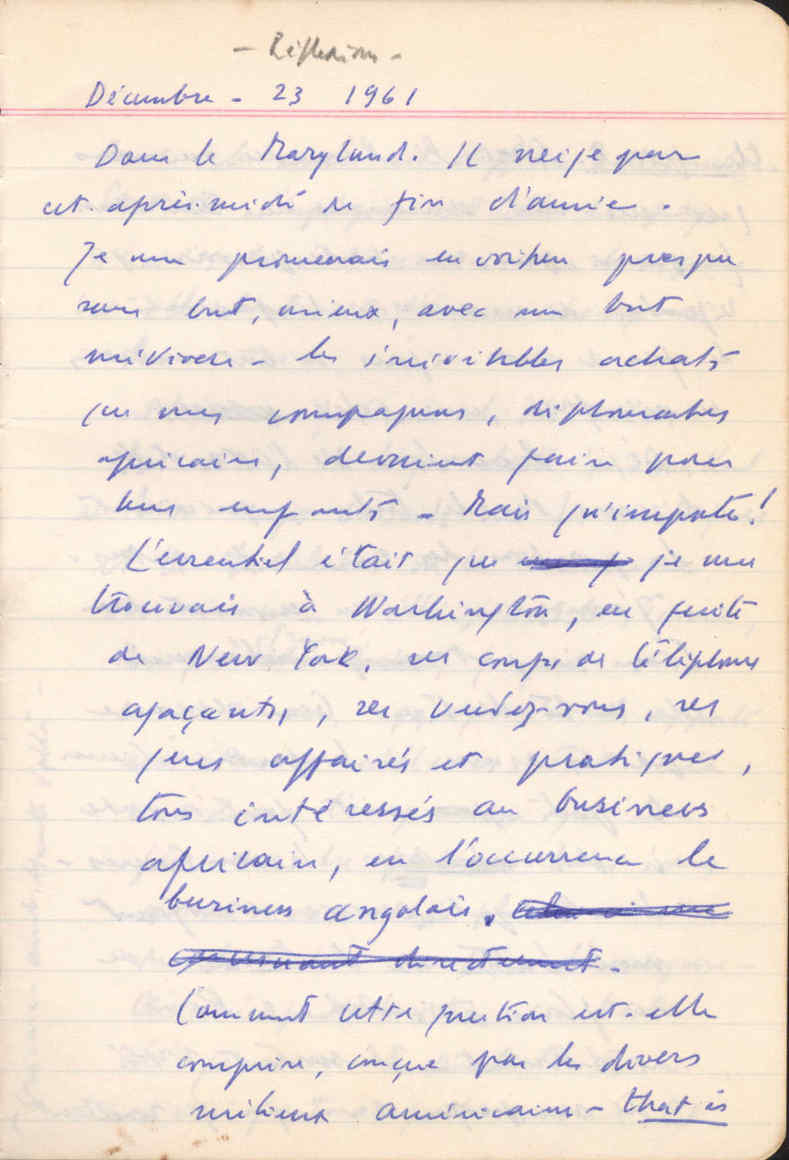 - Réflexions -
Décembre - 23 1961
Dans le Maryland. Il neige par
cet après-midi de fin d'année.
Je me promenais en voiture presque
sans but, mieux, avec un but
les inévitables achats
que mes compagnons, diplomates
africains, devaient faire pour
leurs enfants - Mais qu'importe!
L'essentiel était que je me
trouvais à Washington, en fuite
de New York, ses coups de téléphone
agaçants, ses rendez-vous, ses
gens affairés et pratiques,
tous intéressés au business
africain, en l'occurrence le
business angolais.
directement.
Comment cette question est-elle
comprise, conçue par les divers
milieux américains - that is